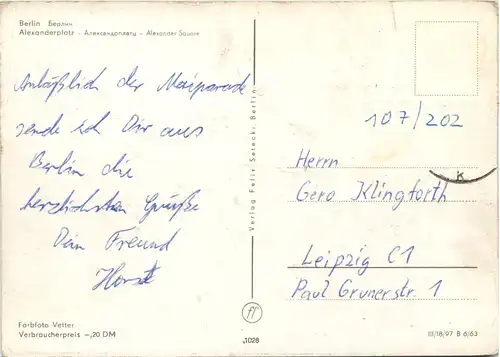 Berlin Берлин
Alexanderplatz - Александрплатц - Alexander Square
Anläßlich der Maiparade
sende ich Dir aus
Berlin die
herzlichsten Grüße
Dein Freund
Horst
Farbfoto Vetter
Verbraucherpreis -,20 DM
Verlag Felix Setecki Berlin
1028
107/202
Herrn
K
Gero Klingforth
Leipzig C1
Paul Grunerstr. 1
III/18/97 B 6/63